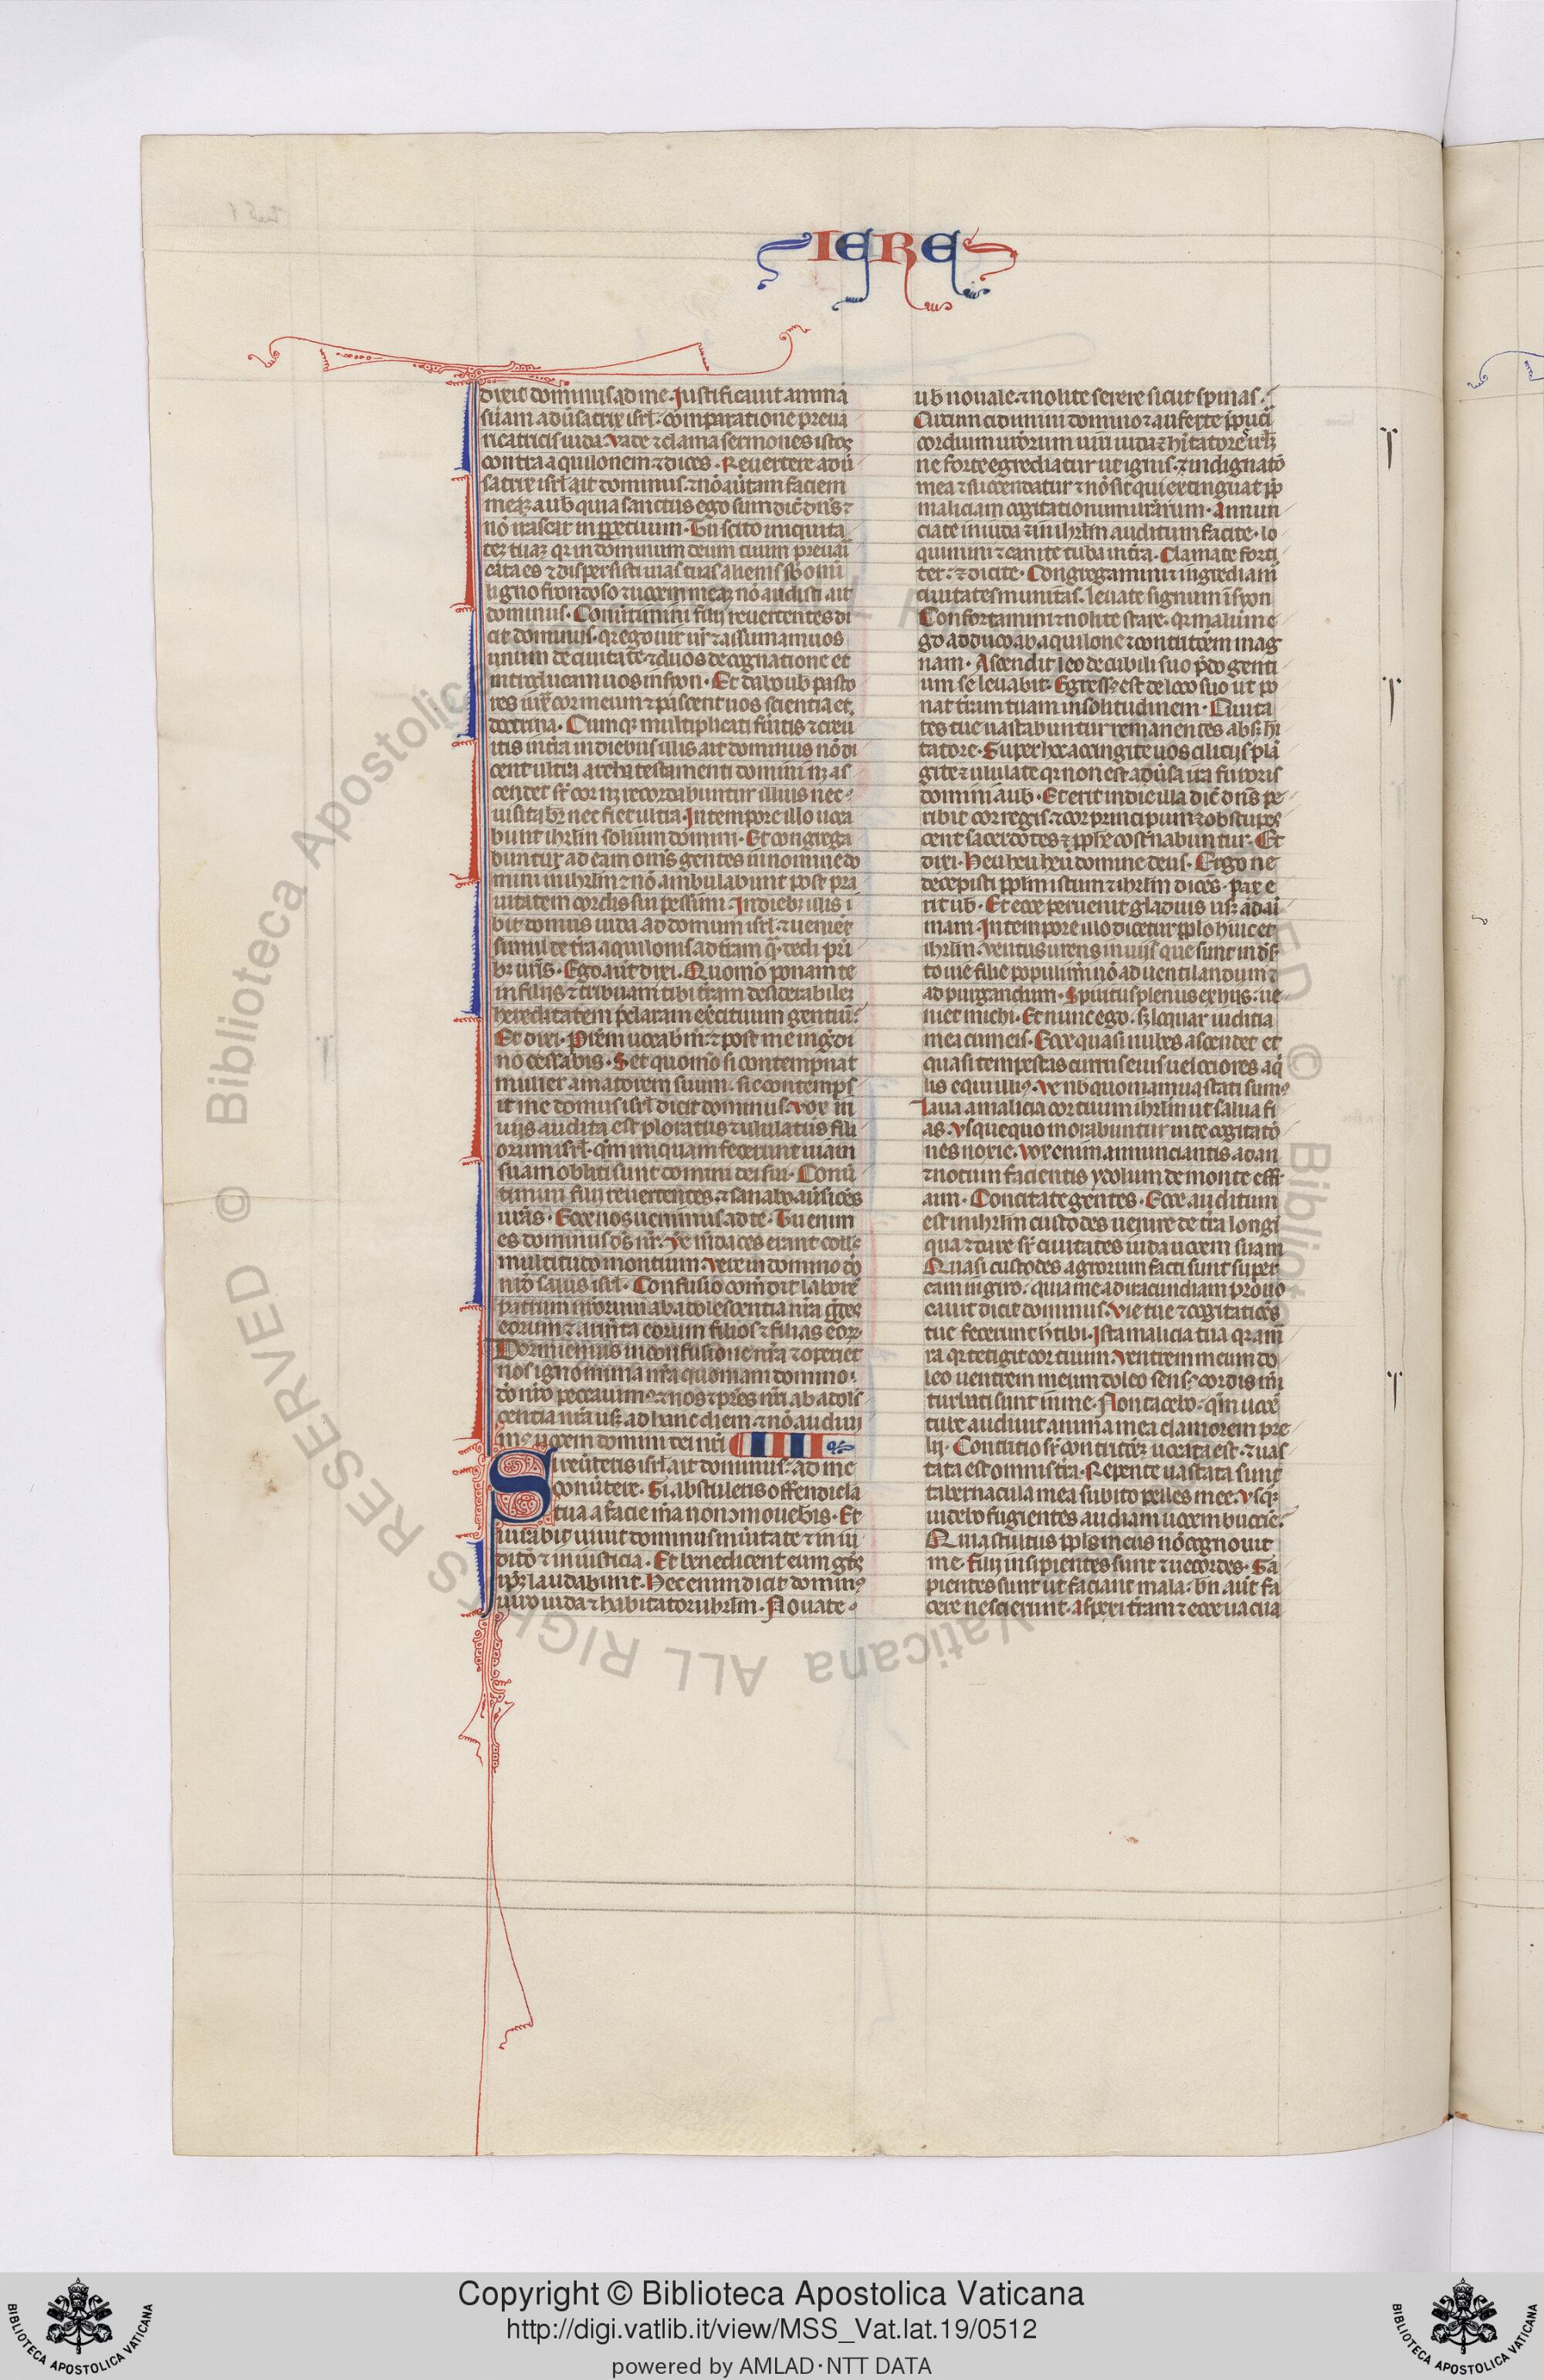 IERE
dixit dominus ad me. Justificauit anima
suam aduersatrix isrl. comparatione preua
ricatricis iuda. Vade et clama sermones istos
contra aquilonem et dices. Reuertere adu
satrix isrl ait dominus. et no auertam faciem
meam a uob quia sanctus ego sum dicit dns et
no irascar in perpetuum. Tu scito iniquita
tem tuam qr in dominum deum tuum preuari
cata es et dispersisti uias tuas alienis sub omi
ligno frondoso et uocem meam no audisti ait
dominus. Conuertimini filij reuertentes di
cit dominus. qr ego uir ur et assumam uos
unum de ciuitate et duos de cognatione et
introducam uos in syon. Et dabo uob pasto
res iuxta cor meum et pascent uos scientia et
doctrina. Cumq multiplicati fueritis et creu
itis in tra in diebus illis ait dominus no di
cent ultra archa testamenti domini neq as
cendet sr cor neq recordabuntur illius nec
uisitabr nec fiet ultra. In tempore illo uoca
bunt ihrlm solium domini. Et congrega
buntur ad eam oms gentes in nomine do
mini in ihrlm et no ambulabunt post pra
uitatem cordis sui pessimi. In dieb illis i
bit domus iuda ad domum isrl. et uenient
simul de tra aquilonis ad tram qua dedi patri
br uris. Ego aut dixi. Quomo ponam te
in filijs et tribuam tibi tram desiderabilem
hereditatem preclaram exercituum gentium.
Et dixi. Patrem uocabis me et post me ingredi
no cessabis. Set quomo si contempnat
mulier amatorem suum. sic contemps
it me domus isrl dicit dominus. Vox in
uijs audita est ploratus et ululatus fili
orum isrl. qm iniquam fecerunt uiam
suam obliti sunt domini dei sui. Conuer
timini filij reuertentes. et sanabo auersiones
uras. Ecce nos uenimus ad te. Tu enim
es dominus ds nr. Vere mdaces erant colles
multitudo montium. Vere in domino do
nro salus isrl. Confusio comedit laborem
patrum nrorum ab adolescentia nra greges
eorum et armta eorum filios et filias eorum
Dormiemus in confusione nra et operiet
nos ignominia nra quoniam domino
do nro peccauimus et nos et patres nri ab adoles
centia nra usq ad hanc diem. et no audiui
mus uocem domini dei nri
Si reuerteris isrl ait dominus. ad me
conuertere. Si abstuleris offendicla
tua a facie mea non comoueberis. Et
iurabis uiuit dominus in ueritate et in iu
ditio et in iusticia. Et benedicent eum gentes
ipsumq laudabunt. Hec enim dicit dominus
uiro iuda et habitatori ihrlm. Nouate
uob nouale. et nolite serere sicut spinas.
Circumcidimini domino et auferte prepucia
cordium urorum uiri iuda et habitatores ihrlm
ne forte egrediatur ut ignis. et indignatio
mea et succendatur et no sit qui extinguat prop
maliciam cogitationum urarum. Annun
ciate in iuda et in ihrlm auditum facite. lo
quimini et canite tuba in tra. Clamate forti
ter. et dicite. Congregamini et ingrediamur
ciuitates munitas. leuate signum in syon
Confortamini et nolite stare. qr malum e
go adduco ab aquilone et contritionem mag
nam. Ascendit leo de cubili suo predo genti
um se leuabit. Egressus est de loco suo ut po
nat terram tuam in solitudinem. Ciuita
tes tue uastabuntur remanentes absq hi
tatore. Super hoc accingite uos cilicijs plan
gite et ululate qr non est aduersa ira furoris
domini a uob. Et erit in die illa dicit dns pe
ribit cor regis. et cor principum et obstupes
cent sacerdotes et pphe costernabuntur. Et
dixi. Heu heu heu domine deus. Ergo ne
decepisti pplm istum et ihrlm dicens. pax e
rit uob. Et ecce peruenit gladius usq ad ani
mam. In tempore illo dicetur pplo huic et
ihrlm. Ventus urens in uijs que sunt in deser
to uie filie populi mei no ad uentilandum et
ad purgandum. Spiritus plenus ex hijs. ue
niet michi. Et nunc ego. sed loquar iuditia
mea cum eis. Ecce quasi nubes ascendet et
quasi tempestas currus eius uelociores aqui
lis equi illius. Ve nob quoniam uastati sumus
Laua a malicia cor tuum ihrlm ut salua fi
as. Vsquequo morabuntur in te cogitatio
nes noxie. Vox enim annunciantis a dan
et notum facientis ydolum de monte effr
aim. Concitate gentes. Ecce auditum
est in ihrlm custodes uenire de tra longi
qua et dare sr ciuitates iuda uocem suam
Quasi custodes agrorum facti sunt super
eam in giro. quia me ad iracundiam prouo
cauit dicit dominus. Vie tue et cogitationes
tue fecerunt h tibi. Ista malicia tua qr ama
ra qr tetigit cor tuum. Ventrem meum do
leo uentrem meum doleo sensus cordis mei
turbati sunt in me. Non tacebo. qm uocem
tube audiuit anima mea clamorem pre
lij. Contritio sr contritionem uocata est. et uas
tata est omnis tra. Repente uastata sunt
tabernacula mea subito pelles mee. Vsqr
uidebo fugientes. audiam uocem buccine.
Quia stultus ppls meus no cognouit
me. filij insipientes sunt et uecordes. Sa
pientes sunt ut faciant mala. bn aut fa
cere nescierunt. Aspexi tram et ecce uacua
Copyright © Biblioteca Apostolica Vaticana
http://digi.vatlib.it/view/MSS_Vat.lat.19/0512
powered by AMLAD·NTT DATA
BIBLIOTECA APOSTOLICA VATICANA
BIBLIOTECA APOSTOLICA VATICANA